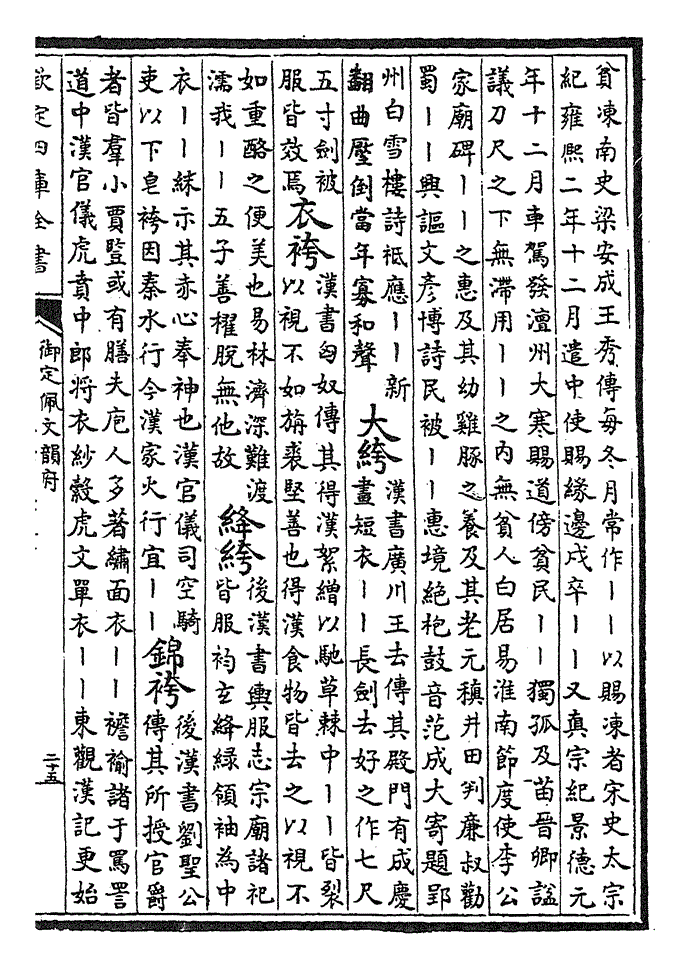 貧凍南史梁安成王秀傳每冬月常作丨丨以賜凍者宋史太宗
紀雍熙二年十二月遣中使賜緣邊戍卒丨丨又真宗紀景德元
年十二月車駕發澶州大寒賜道傍貧民丨丨獨孤及苗晉卿諡
議刀尺之下無滯用丨丨之内無貧人白居易淮南節度使李公
家廟碑丨丨之惠及其幼雞豚之養及其老元稹井田判廉叔勸
蜀丨丨興謳文彦博詩民被丨丨惠境絶枹鼓音范成大寄題郢
州白雪樓詩祇應丨丨新
翻曲壓倒當年寡和聲
大絝
漢書廣川王去傳其殿門有成慶
畫短衣丨丨長劍去好之作七尺
五寸劍被
服皆效焉
衣袴
漢書匈奴傳其得漢絮繒以馳草棘中丨丨皆裂
以視不如旃裘堅善也得漢食物皆去之以視不
如重酪之便美也易林濟深難渡
濡我丨丨五子善櫂脫無他故
絳絝
後漢書輿服志宗廟諸祀
皆服袀玄絳緑領袖為中
衣丨丨絑示其赤心奉神也漢官儀司空騎
吏以下皂袴因秦水行今漢家火行宜丨丨
錦袴
後漢書劉聖公
傳其所授官爵
者皆羣小賈豎或有膳夫庖人多著繡面衣丨丨襜褕諸于罵詈
道中漢官儀虎賁中郎將衣紗縠虎文單衣丨丨東觀漢記更始
欽定四庫全書
御定佩文韻府
二十五